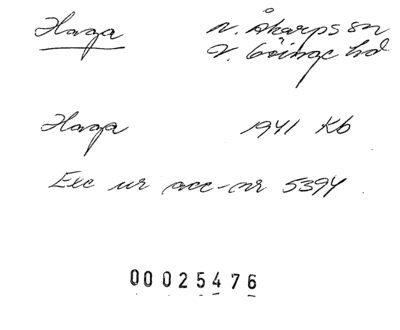 Haga N. Åkarps sn
V. Göinge hd
Haga 1941 Kb
Exc ur acc-nr 5394
00025476